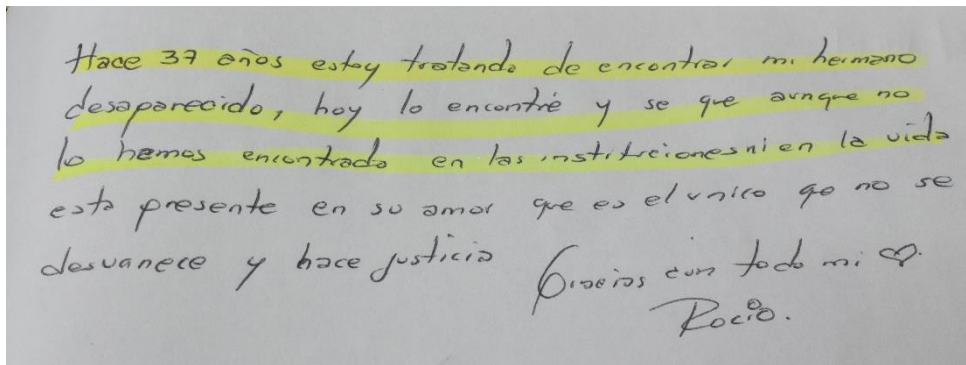 Hace 37 años estoy tratando de encontrar mi hermano
desaparecido, hoy lo encontré y se que aunque no
lo hemos encontrado en las instituciones ni en la vida
esta presente en su amor que es el unico qe no se
desvanece y hace justicia Gracias con todo mi ♡.
Rocio.